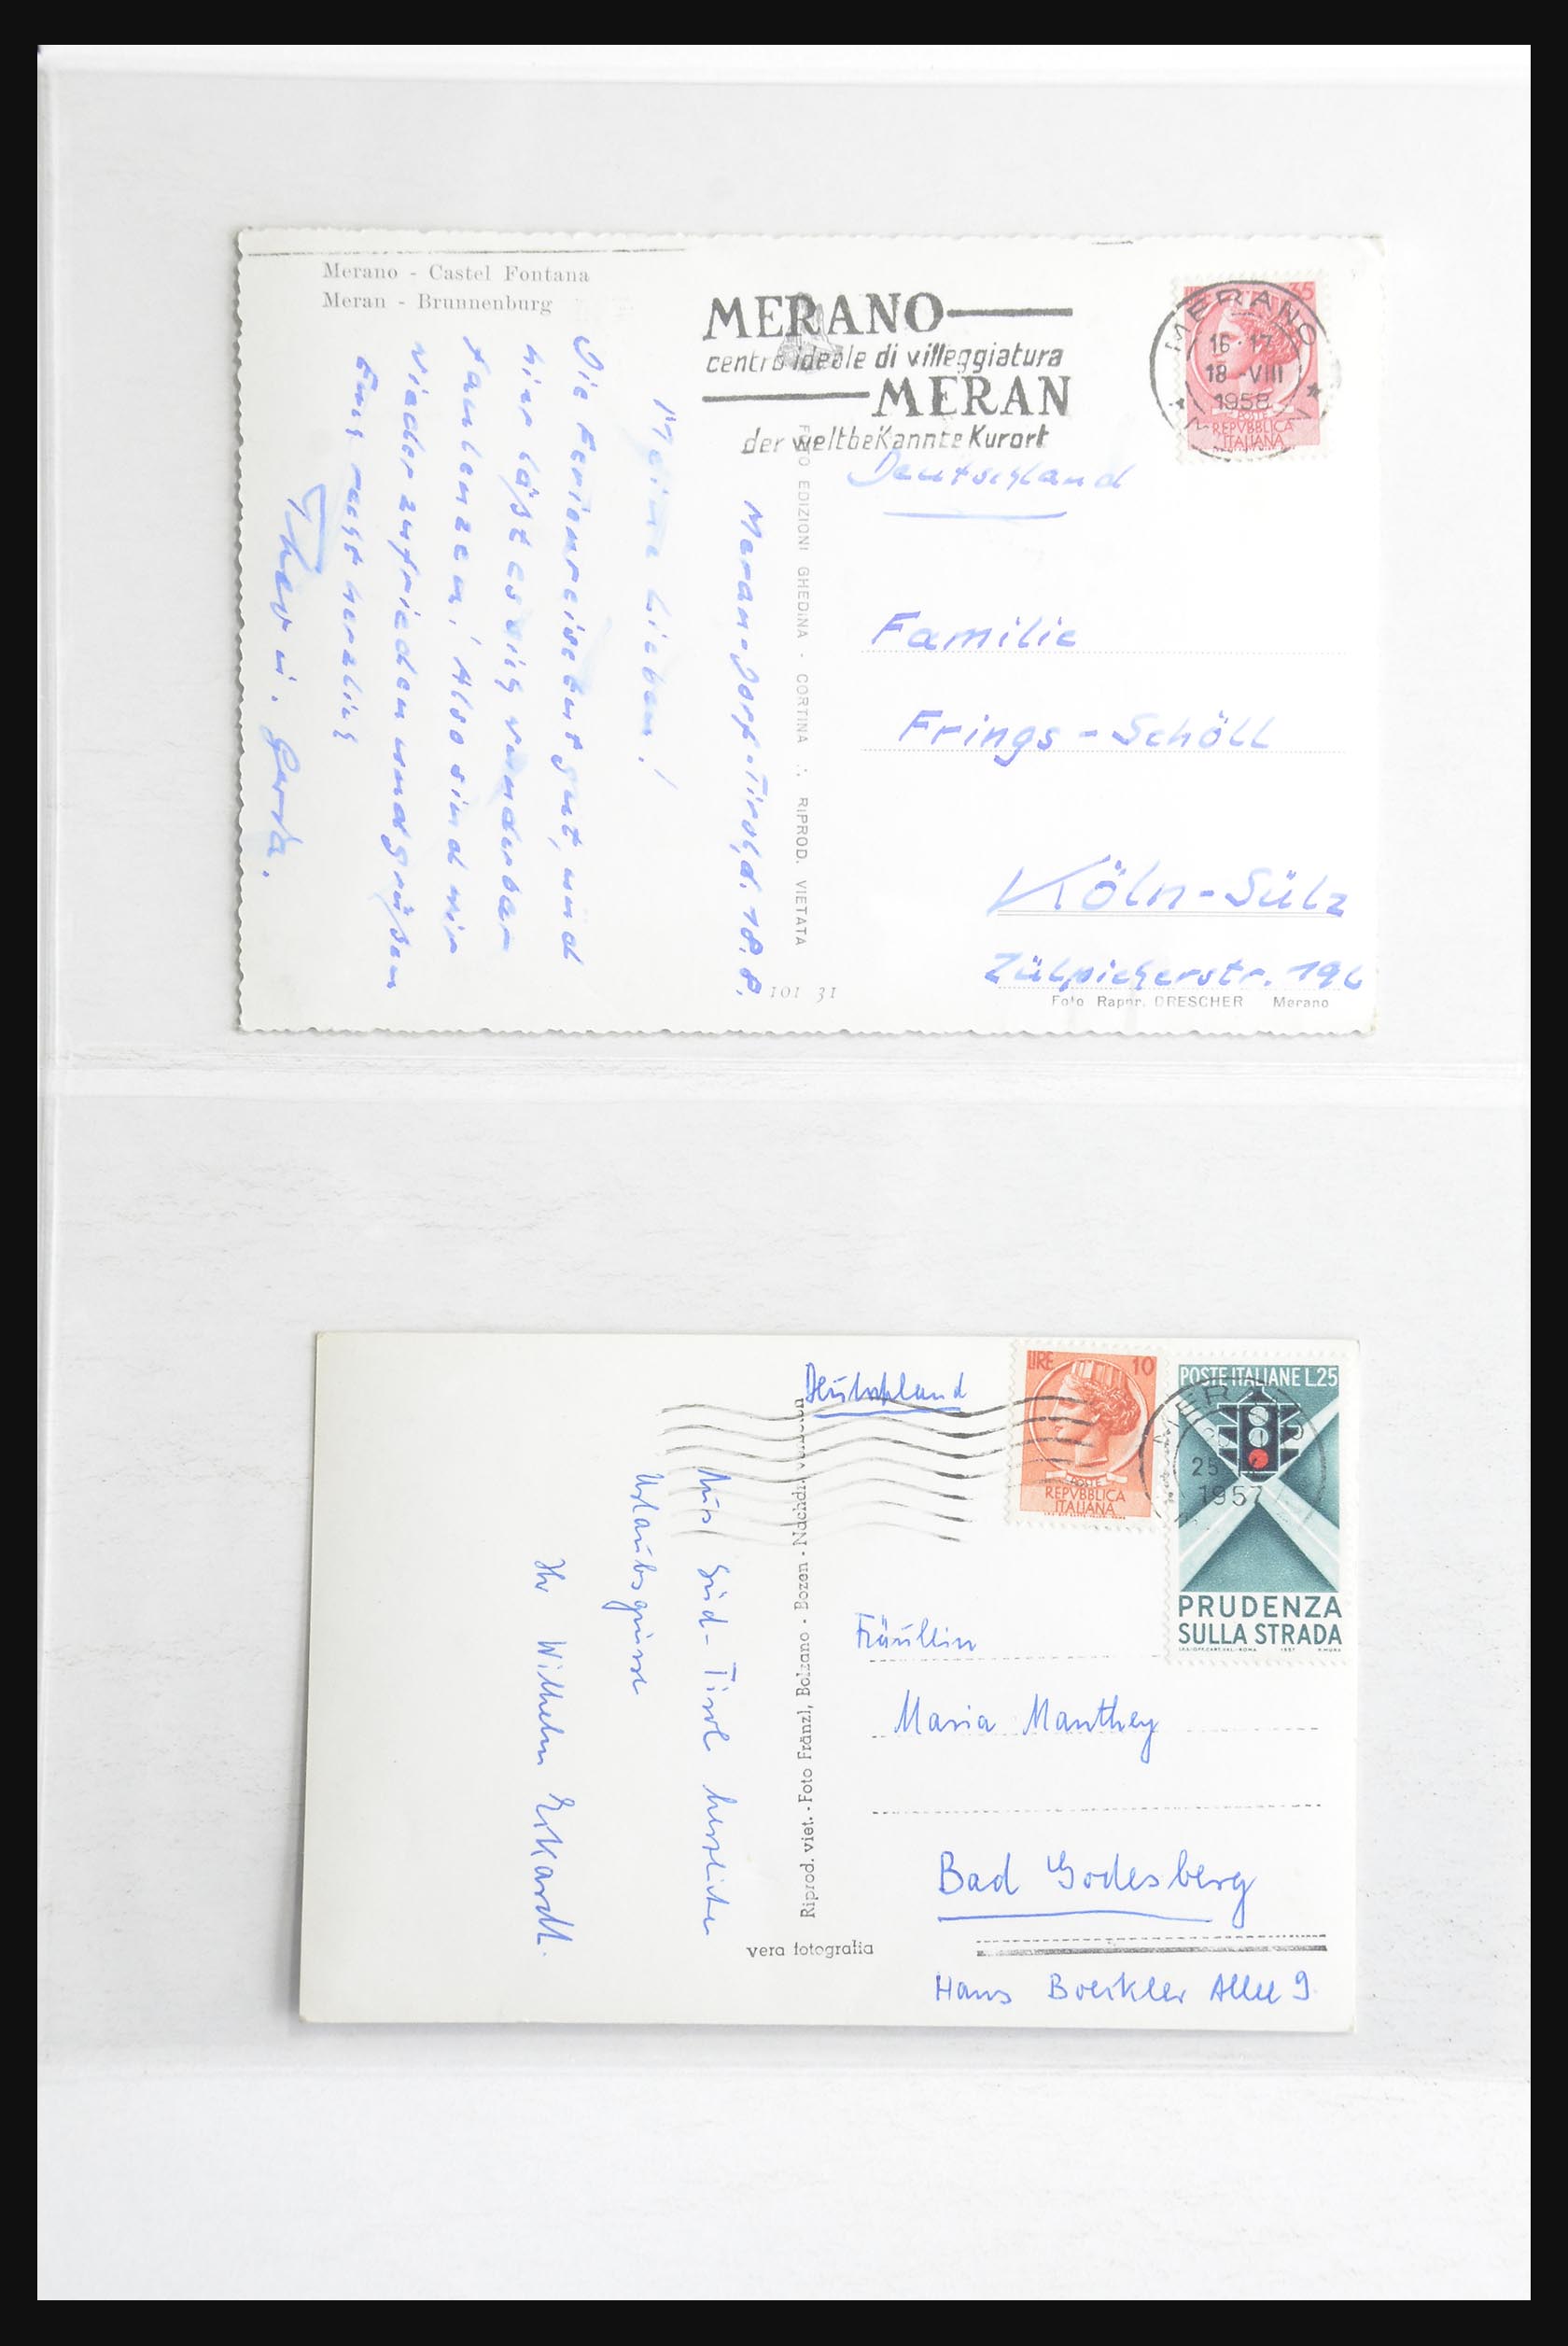 Merano - Castel Fontana
Meran - Brunnenburg
MERANO
centro ideale di villeggiatura
MERAN
der weltbekannte Kurort
35
MERANO
16-17
18-VIII
1958
POSTE
REPVBBLICA
ITALIANA
Meran-Dorf-Tirol, d. 18.8.
Meine Lieben!
Die Ferienreise tut gut, und
hier läßt es sich wunderbar
faulenzen! Also sind wir
wieder zufrieden und grüßen
Euch recht herzlich
Theo u. Gerda.
FOTO EDIZIONI GHEDINA - CORTINA ∴ RIPROD. VIETATA
101 31
Deutschland
Familie
Frings-Schöll
Köln-Sülz
Zülpicherstr. 196
Foto Rappr. DRESCHER Merano
Deutschland
LIRE 10
POSTE
REPVBBLICA
ITALIANA
POSTE ITALIANE L.25
MER
25
1957
PRUDENZA
SULLA STRADA
Aus Süd-Tirol herzliche
Urlaubsgrüsse
Ihr Wilhelm Erkardt.
Riprod. viet. - Foto Fränzl, Bolzano - Bozen - Nachdr. verboten
vera fotografia
Fräulein
Maria Manthey
Bad Godesberg
Hans Böckler Allee 9